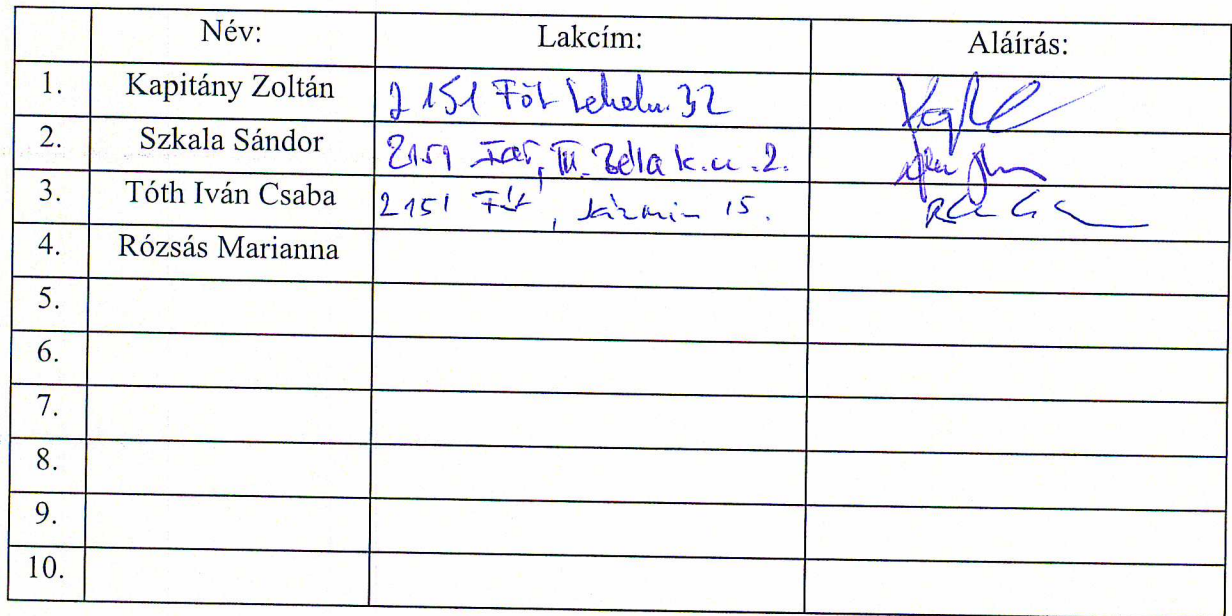 Név: Lakcím: Aláírás:
1. Kapitány Zoltán 2151 Fót Lehel u. 32
2. Szkala Sándor 2151 Fót, III. Béla k. u. 2.
3. Tóth Iván Csaba 2151 Fót, 15.
4. Rózsás Marianna
5.
6.
7.
8.
9.
10.